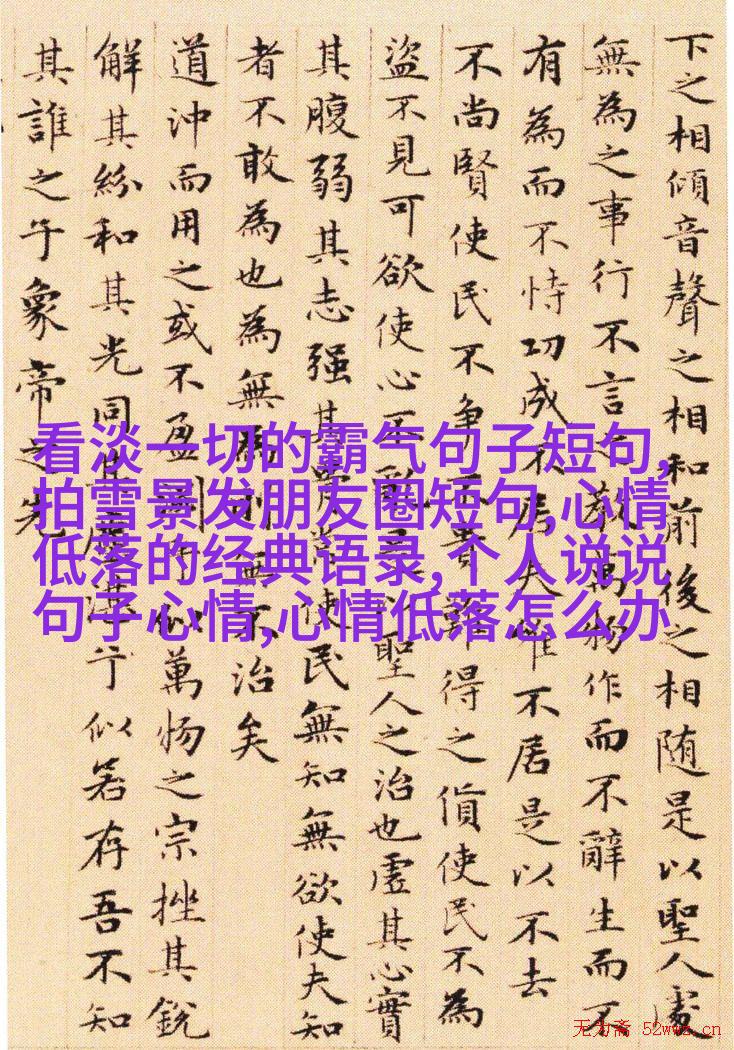 下之相傾音聲之相和前後之相随是以聖人處
無為之事行不言之教萬物作而不辭生而不
有為而不恃功成不居夫唯不居是以不去
不尚賢使民不争不貴難得之貨使民不為
盜不見可欲使心不亂是以聖人之治也虛其心實
其腹弱其志强其骨常使民無知無欲使夫知
者不敢為也為無為則無不治矣
道沖而用之或不盈淵兮似萬物之宗挫其銳
解其紛和其光同其塵湛兮似若存吾不知
其誰之子象帝之先
看淡一切的霸气句子短句,
拍雪景发朋友圈短句,心情
低落的经典语录,个人说说
句子心情,心情低落怎么办
无为斋 52wwz.cn